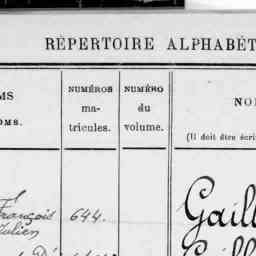 RÉPERTOIRE ALPHABÉT
MS
OMS.
NUMÉROS
ma-
tricules.
NUMÉRO
du
volume.
NO
(Il doit être écri
François
Julien
644.
Gaill